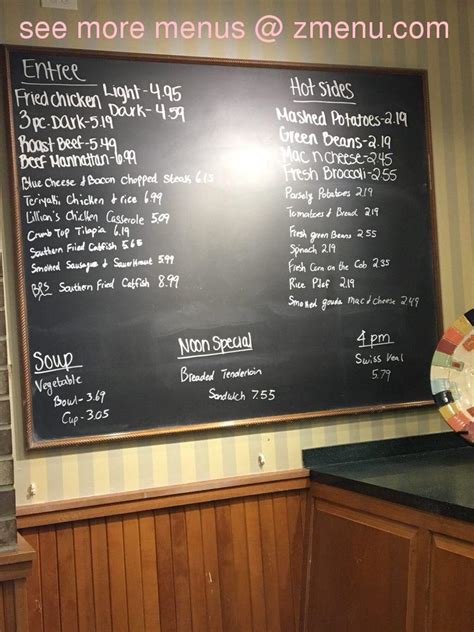 see more menus @ zmenu.com
Entree
Fried chicken Light-4.95
Dark-4.59
3pc-Dark-5.19
Roast Beef-5.49
Beef Manhattan-6.99
Blue Cheese & Bacon Chopped Steak 6.15
Teriyaki Chicken & rice 6.99
Lillian's Chicken Casserole 5.09
Crumb Top Tilapia 6.19
Southern Fried Catfish 5.65
Smoked Sausages & Sauerkraut 5.99
BPS Southern Fried Catfish 8.99
Hot sides
Mashed Potatoes-2.19
Green Beans-2.19
Mac n cheese-2.45
Fresh Broccoli-2.55
Parsely Potatoes 2.19
Tomatoes & Bread 2.19
Fresh green Beans 2.55
Spinach 2.19
Fresh Corn on the Cob 2.35
Rice Pilaf 2.19
Smoked gouda mac & cheese 2.49
Soup
Vegetable
Bowl-3.69
Cup-3.05
Noon Special
Breaded Tenderloin
Sandwich 7.55
4pm
Swiss Veal
5.79